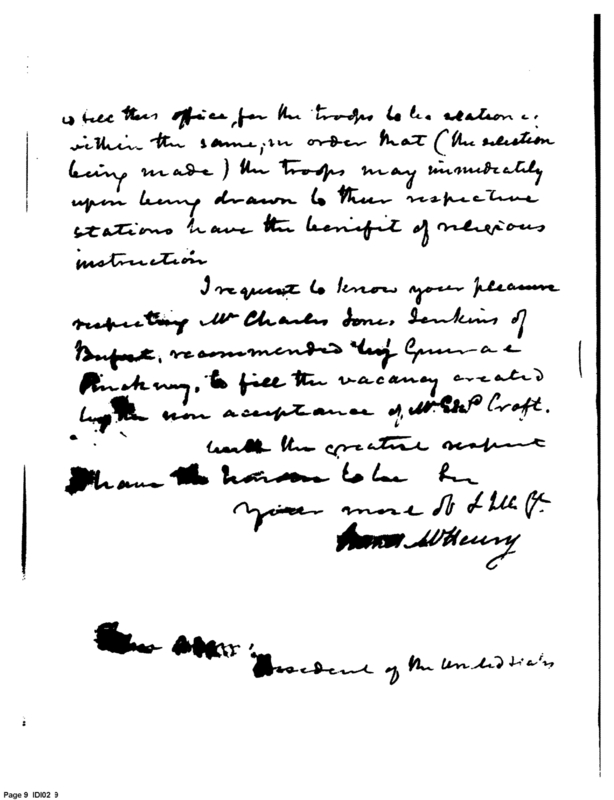 to fill this office, for the troops to be station
within the same, in order that (the selection
being made) the troops may immediately
upon being drawn to their respective
stations have the benefit of religious
instruction
I request to know your pleasure
respecting Mr Charles Jones Jenkins of
recommended by General
Pinckney, to fill the vacancy created
by the non acceptance of Mr Edwd Croft.
With the greatest respect
I have the honor to be Sir
your most ob &
James McHenry
President of the United States
Page 9 IDI02 9